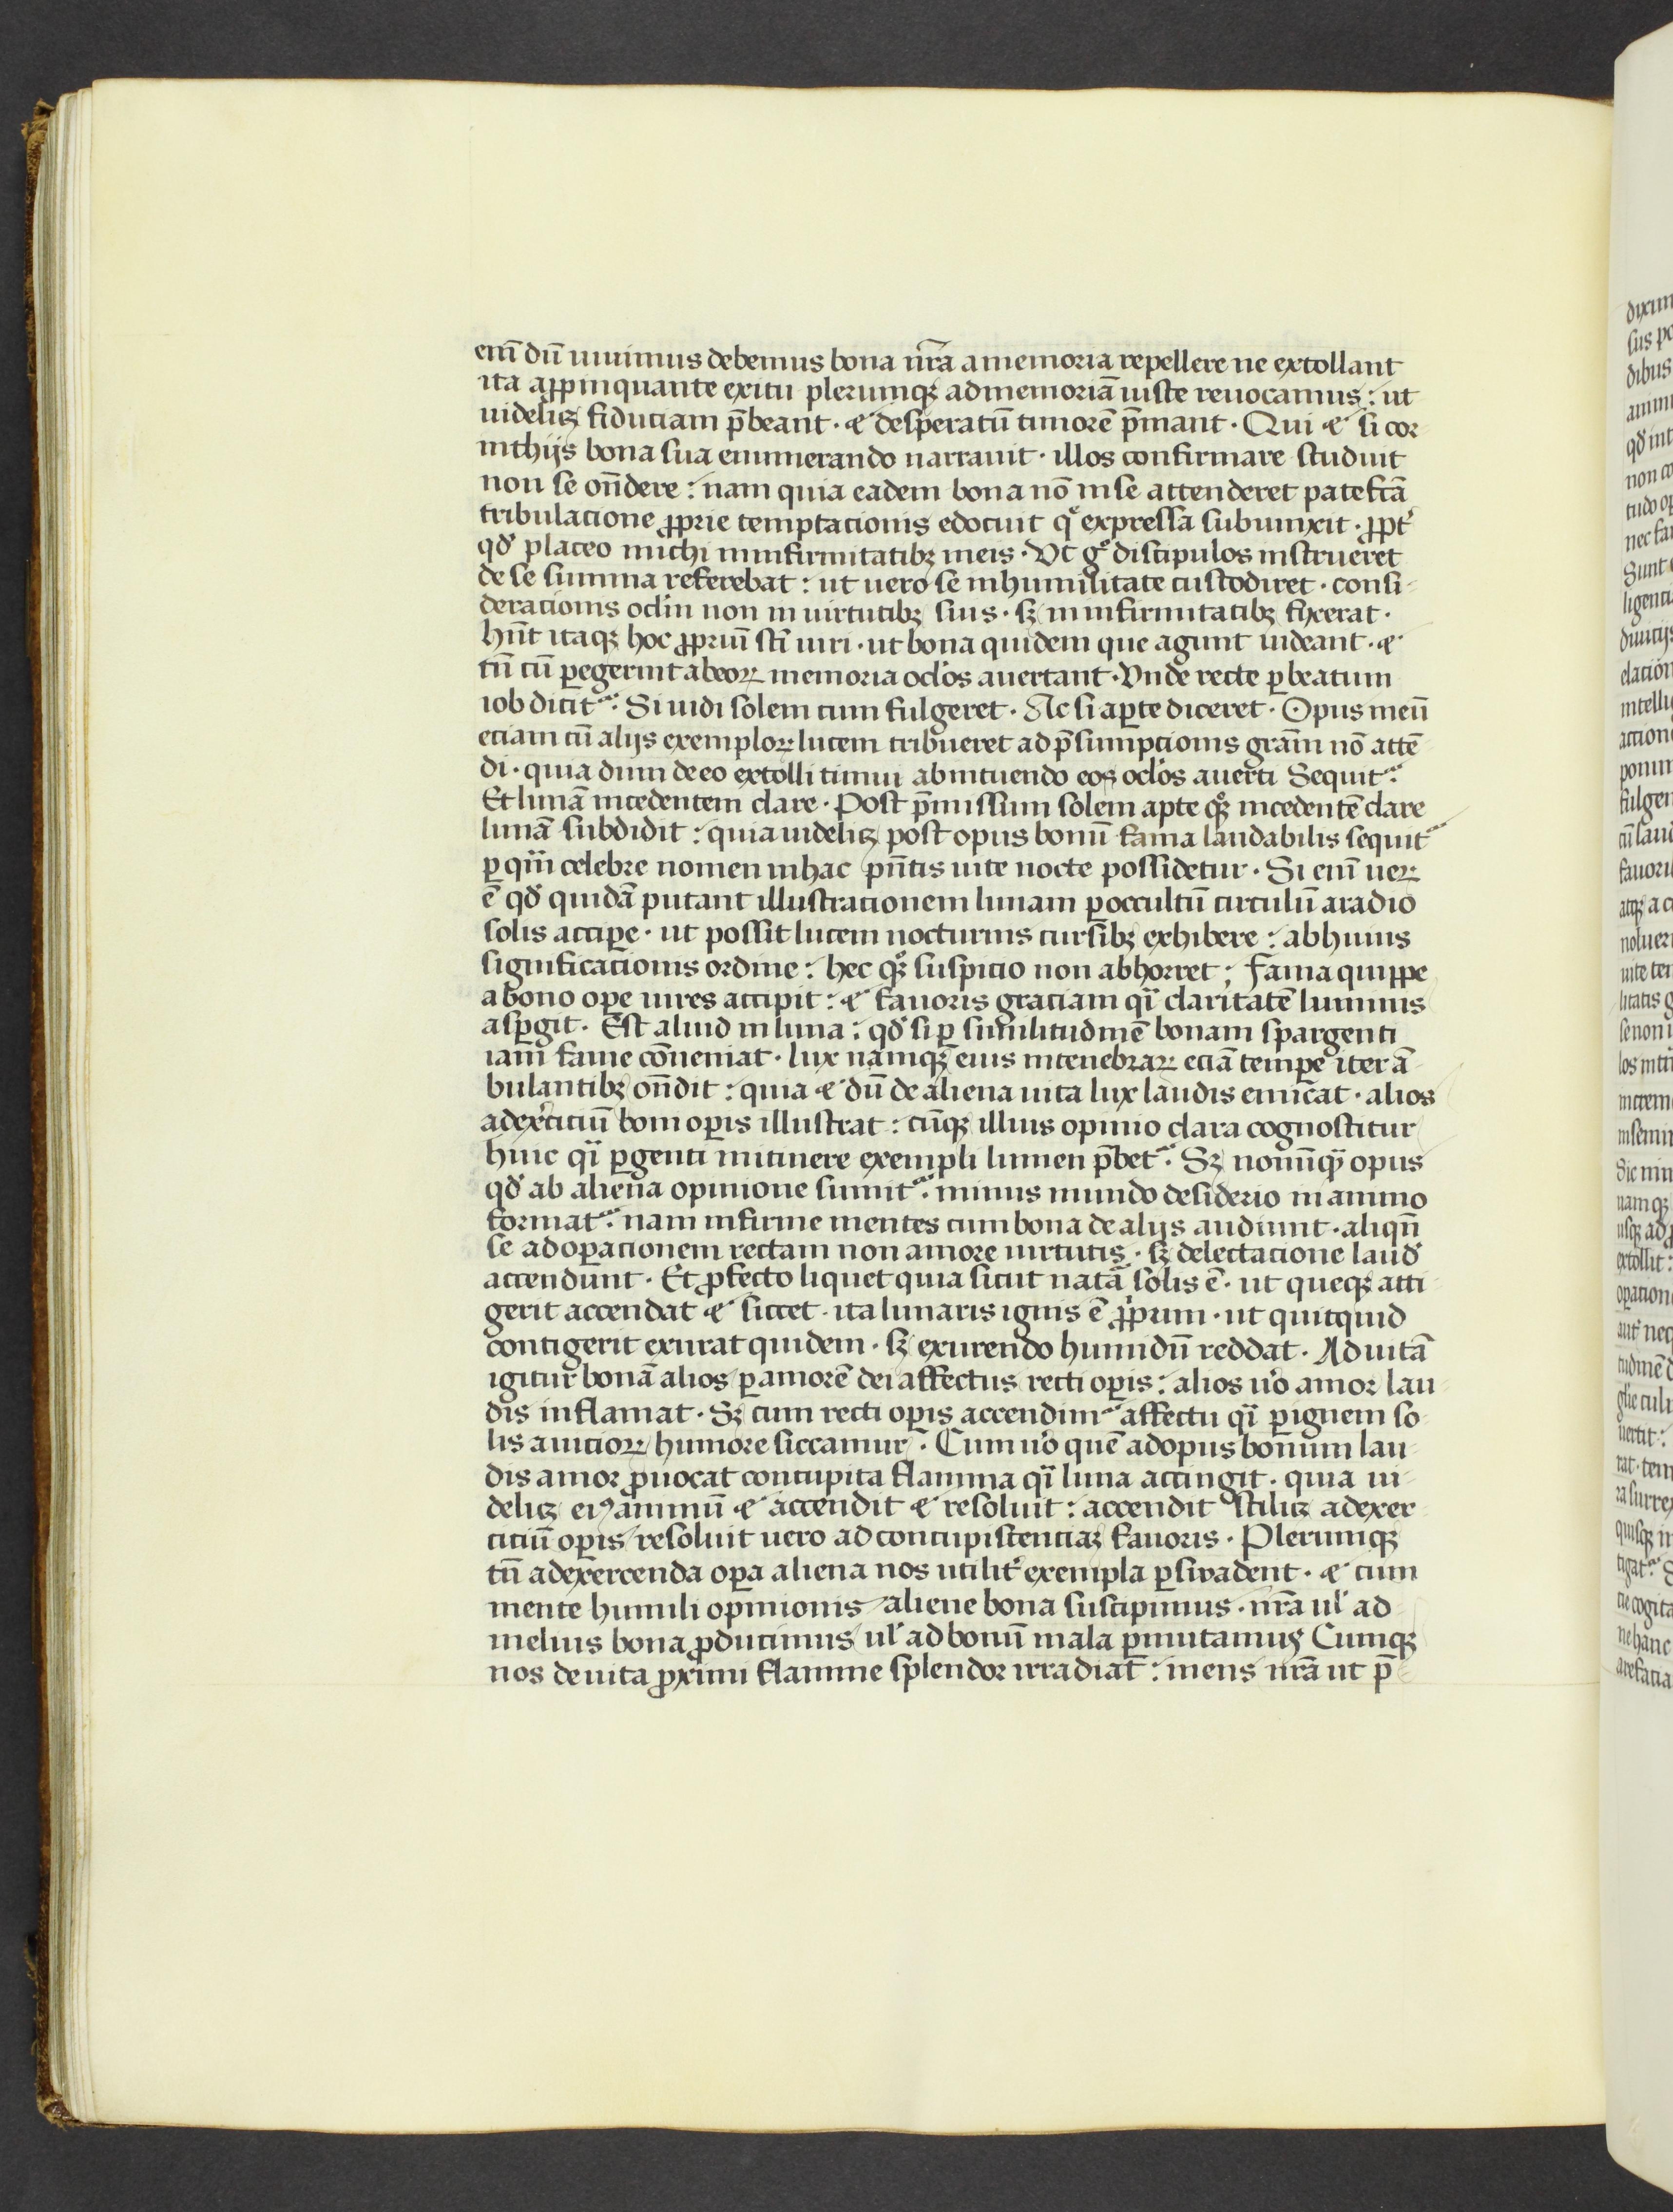 enī dū uiuimus debemus bona nr̄a a memoria repellere ne extollant
ita aꝓpinquante exitu plerumqꝫ ad memoriā iuste reuocamus : ut
uidelicꝫ fiduciam p̄beant · ⁊ desperatū timorē p̄mant · Qui ⁊ si cor-
inthijs bona sua enumerando narrauit · illos confirmare studuit
non se on̄dere : nam quia eadem bona nō in se attenderet patefcā
tribulacione ꝓprie temptacionis edocuit qͤ expressa subiunxit · ꝓpt̉
qd̉ placeo michi in infirmitatibꝫ meis · Vt gͦ discipulos instrueret
de se summa referebat : ut uero se in humilitate custodiret · consi-
deracionis oclm̉ non in uirtutibꝫ suis · sꝫ in infirmitatibꝫ fixerat ·
hn̄t itaqꝫ hoc ꝓpriū sc̄i uiri · ut bona quidem que agunt uideant · ⁊
tn̄ cū ꝑegerint ab eoꝝ memoria oclo̓s auertant · Vnde recte ꝑ beatum
iob dicit᷑ · Si uidi solem cum fulgeret · Ac si aꝑte diceret · Opus meū
eciam cū alijs exemploꝝ lucem tribueret ad p̄sumpcionis gram̄ nō attē-
di · quia dum de eo extolli timui ab intuendo eos oclo̓s auerti Sequit᷑ ·
Et lunā incedentem clare · Post p̄missum solem apte qͦꝫ incedentē clare
lunā subdidit : quia uidelicꝫ post opus bonū fama laudabilis sequit᷑
ꝑ quā celebre nomen in hac pn̄tis uite nocte possidetur · Si enī ueꝝ
ē qd̉ quidā putant illustracionem lunam ꝑ occultū circulū a radio
solis acciꝑe · ut possit lucem nocturnis cursibꝫ exhibere : ab huius
significacionis ordine : hec qͦꝫ suspicio non abhorret ; Fama quippe
a bono oꝑe uires accipit : ⁊ fauoris graciam qͣi claritatē luminis
asꝑgit · Est aliud in luna : qd̉ si ꝑ similitudinē bonam spargenti
iam fame cōueniat · lux namqꝫ eius in tenebraꝝ eciā tempe iter ā-
bulantibꝫ on̄dit : quia ⁊ dū de aliena uita lux laudis emicat · alios
ad ex̉citiū boni oꝑis illustrat : cūqꝫ illius opinio clara cognoscitur
huic qͣi ꝑgenti in itinere exempli lumen p̄bet᷑ · Sꝫ nonūqͣ opus
qd̉ ab aliena opinione sumit᷑ · minus mundo desiderio in animo
format᷑ · nam infirme mentes cum bona de alijs audiunt · aliqn̄
se ad oꝑacionem rectam non amore uirtutis · sꝫ delectacione laud̉
accendunt · Et ꝓfecto liquet quia sicut natā solis ē · ut queqꝫ atti-
gerit accendat ⁊ siccet · ita lunaris ignis ē ꝓpͥum · ut quitquid
contigerit exurat quidem · sꝫ exurendo humidū reddat · Ad uitā
igitur bonā alios ꝑ amorē dei affectus recti oꝑis : alios uͦo amor lau-
dis inflamat · Sꝫ cum recti oꝑis accendim᷑ affectu qͣi ꝑ ignem so-
lis a uicioꝝ humore siccamur · Cum uͦo quē ad opus bonum lau-
dis amor ꝓuocat concupita flamma qͣi luna accingit · quia ui-
delicꝫ eiꝰ animū ⁊ accendit ⁊ resoluit : accendit scilicꝫ ad exer-
citiū oꝑis resoluit uero ad concupiscenciaꝫ fauoris · Plerumqꝫ
tn̄ ad exercenda oꝑa aliena nos utilit̉ exempla ꝑsuadent · ⁊ cum
mente humili opinionis aliene bona suscipimus · nr̄a ul̉ ad
melius bona ꝓducimus ul̉ ad bonū mala ꝑmutamus Cumqꝫ
nos de uita ꝓximi flamme splendor irradiat : mens nr̄a ut p̄